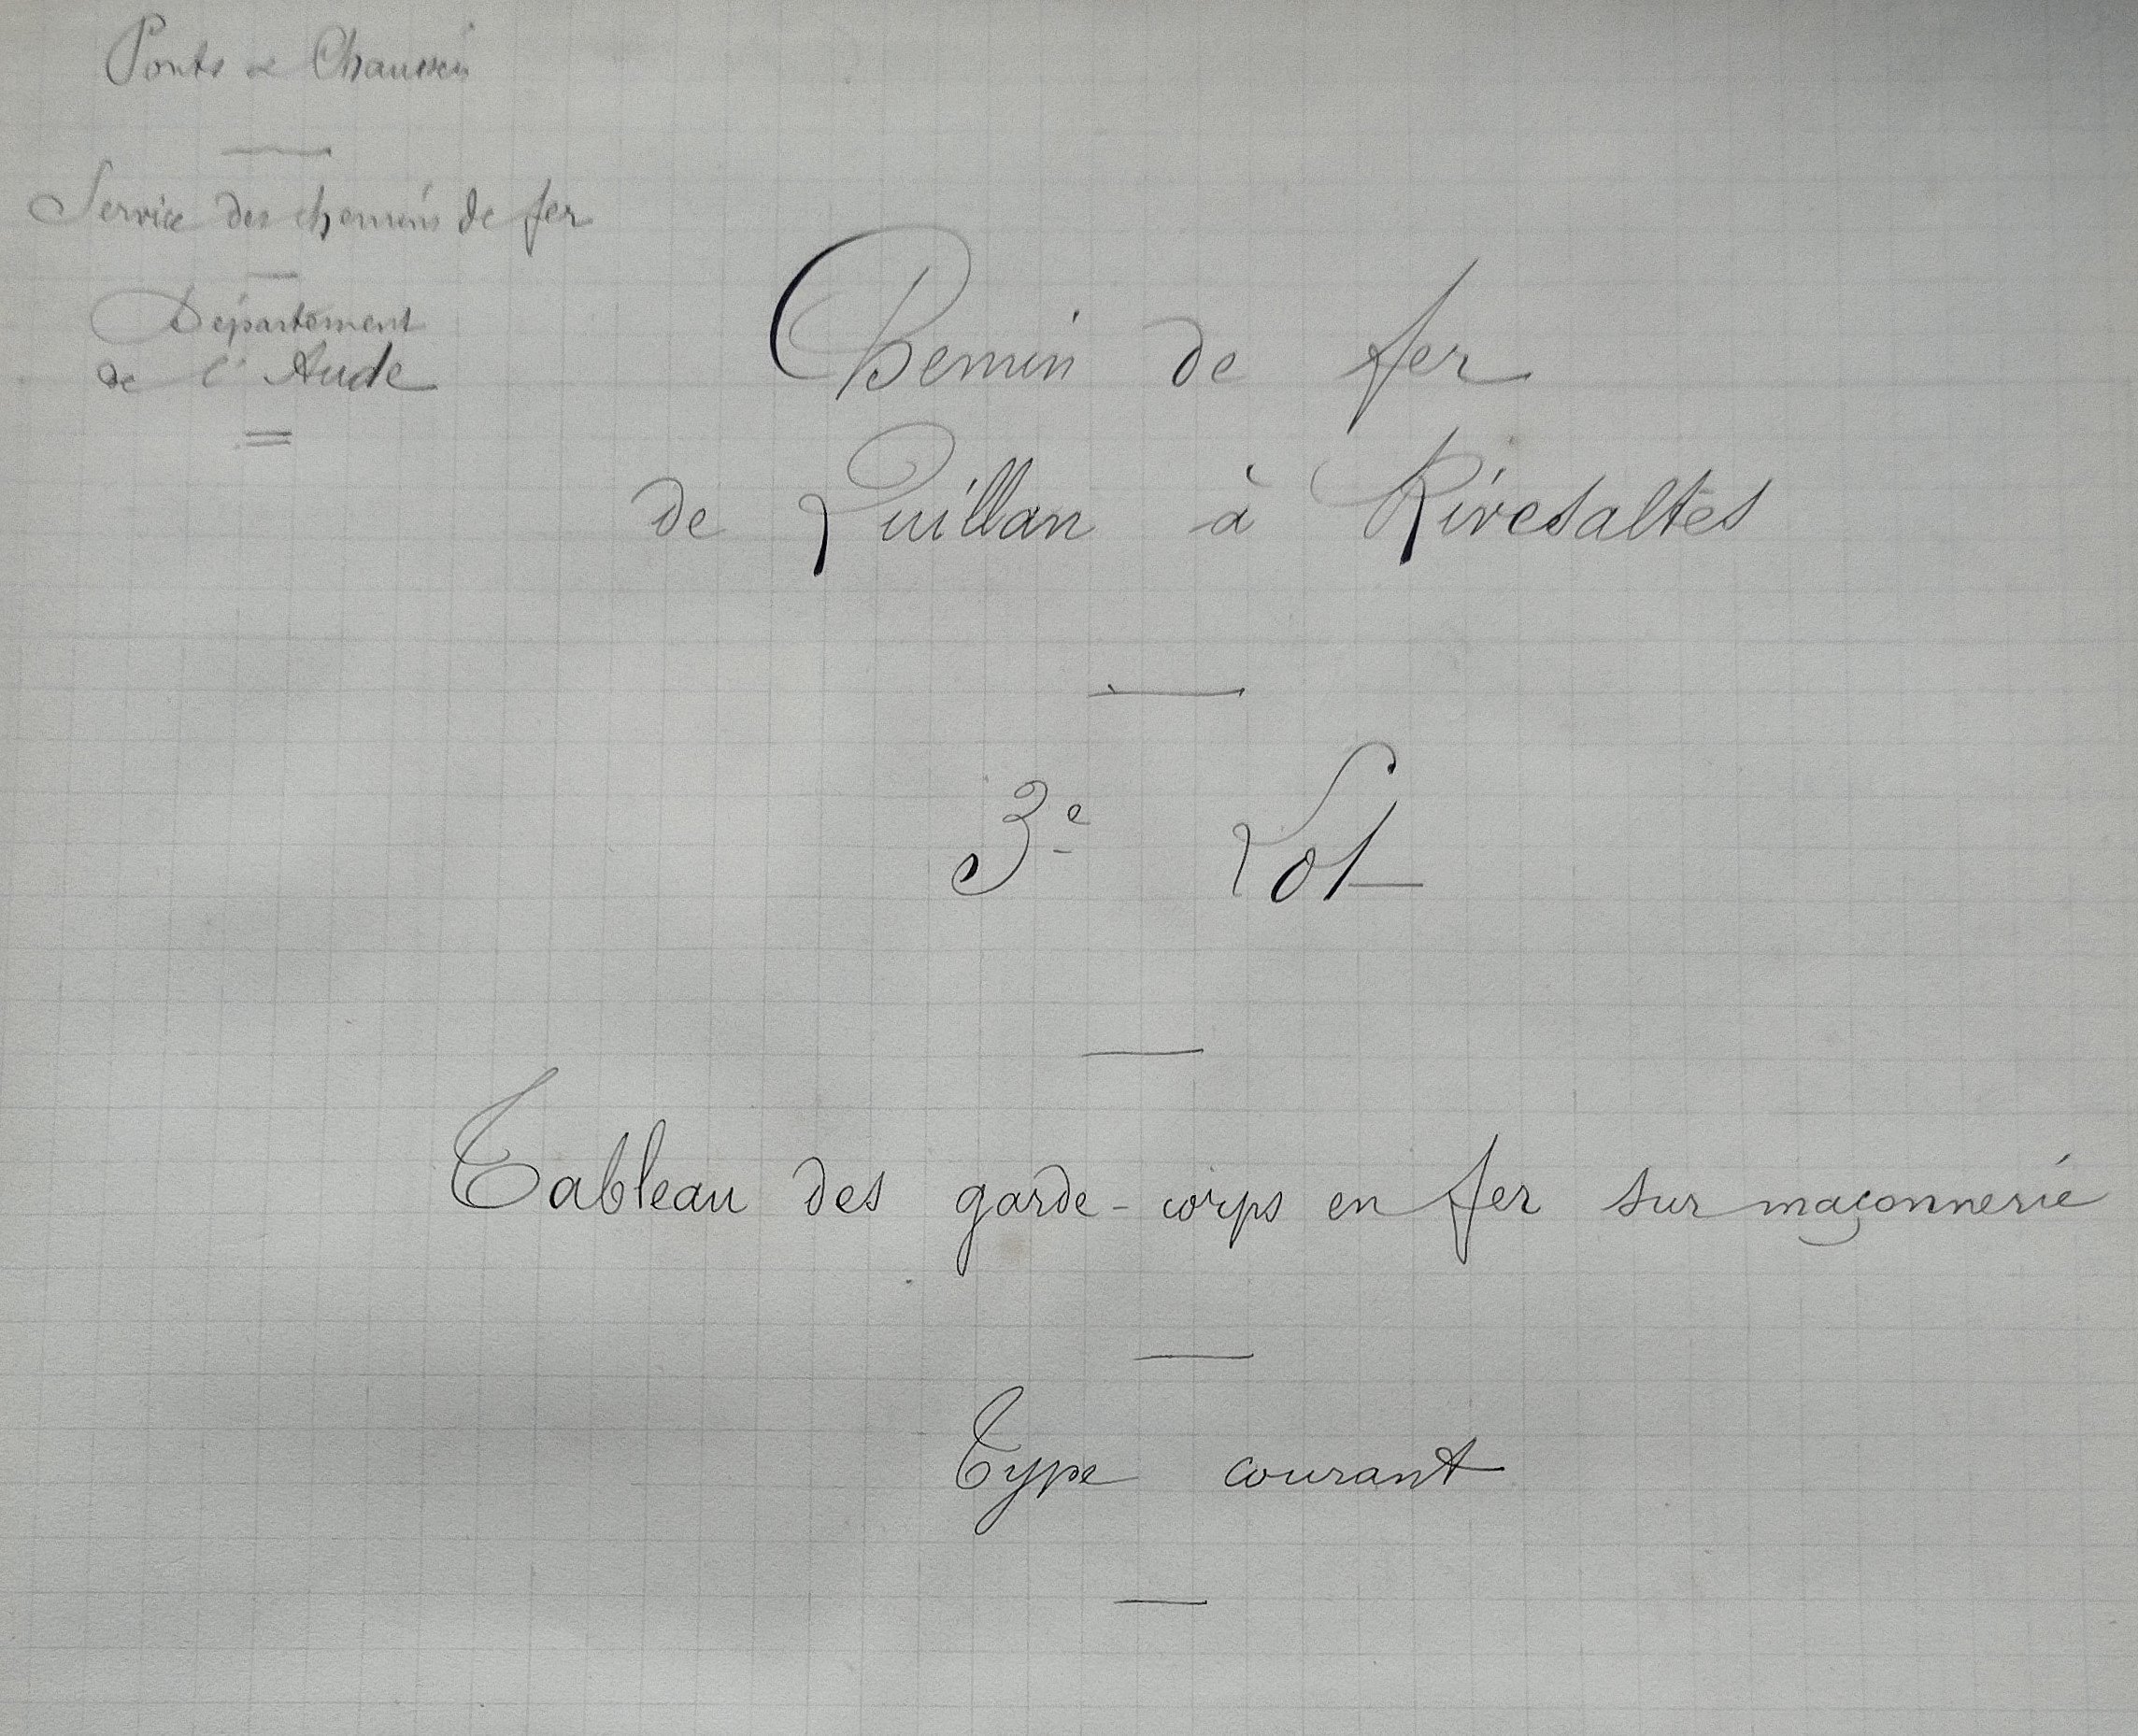 Ponts et Chaussées
Service des chemins de fer
Département
de l'Aude
Chemin de fer
de Quillan à Rivesaltes
3e Lot
Tableau des garde-corps en fer sur maçonnerie
Type courant